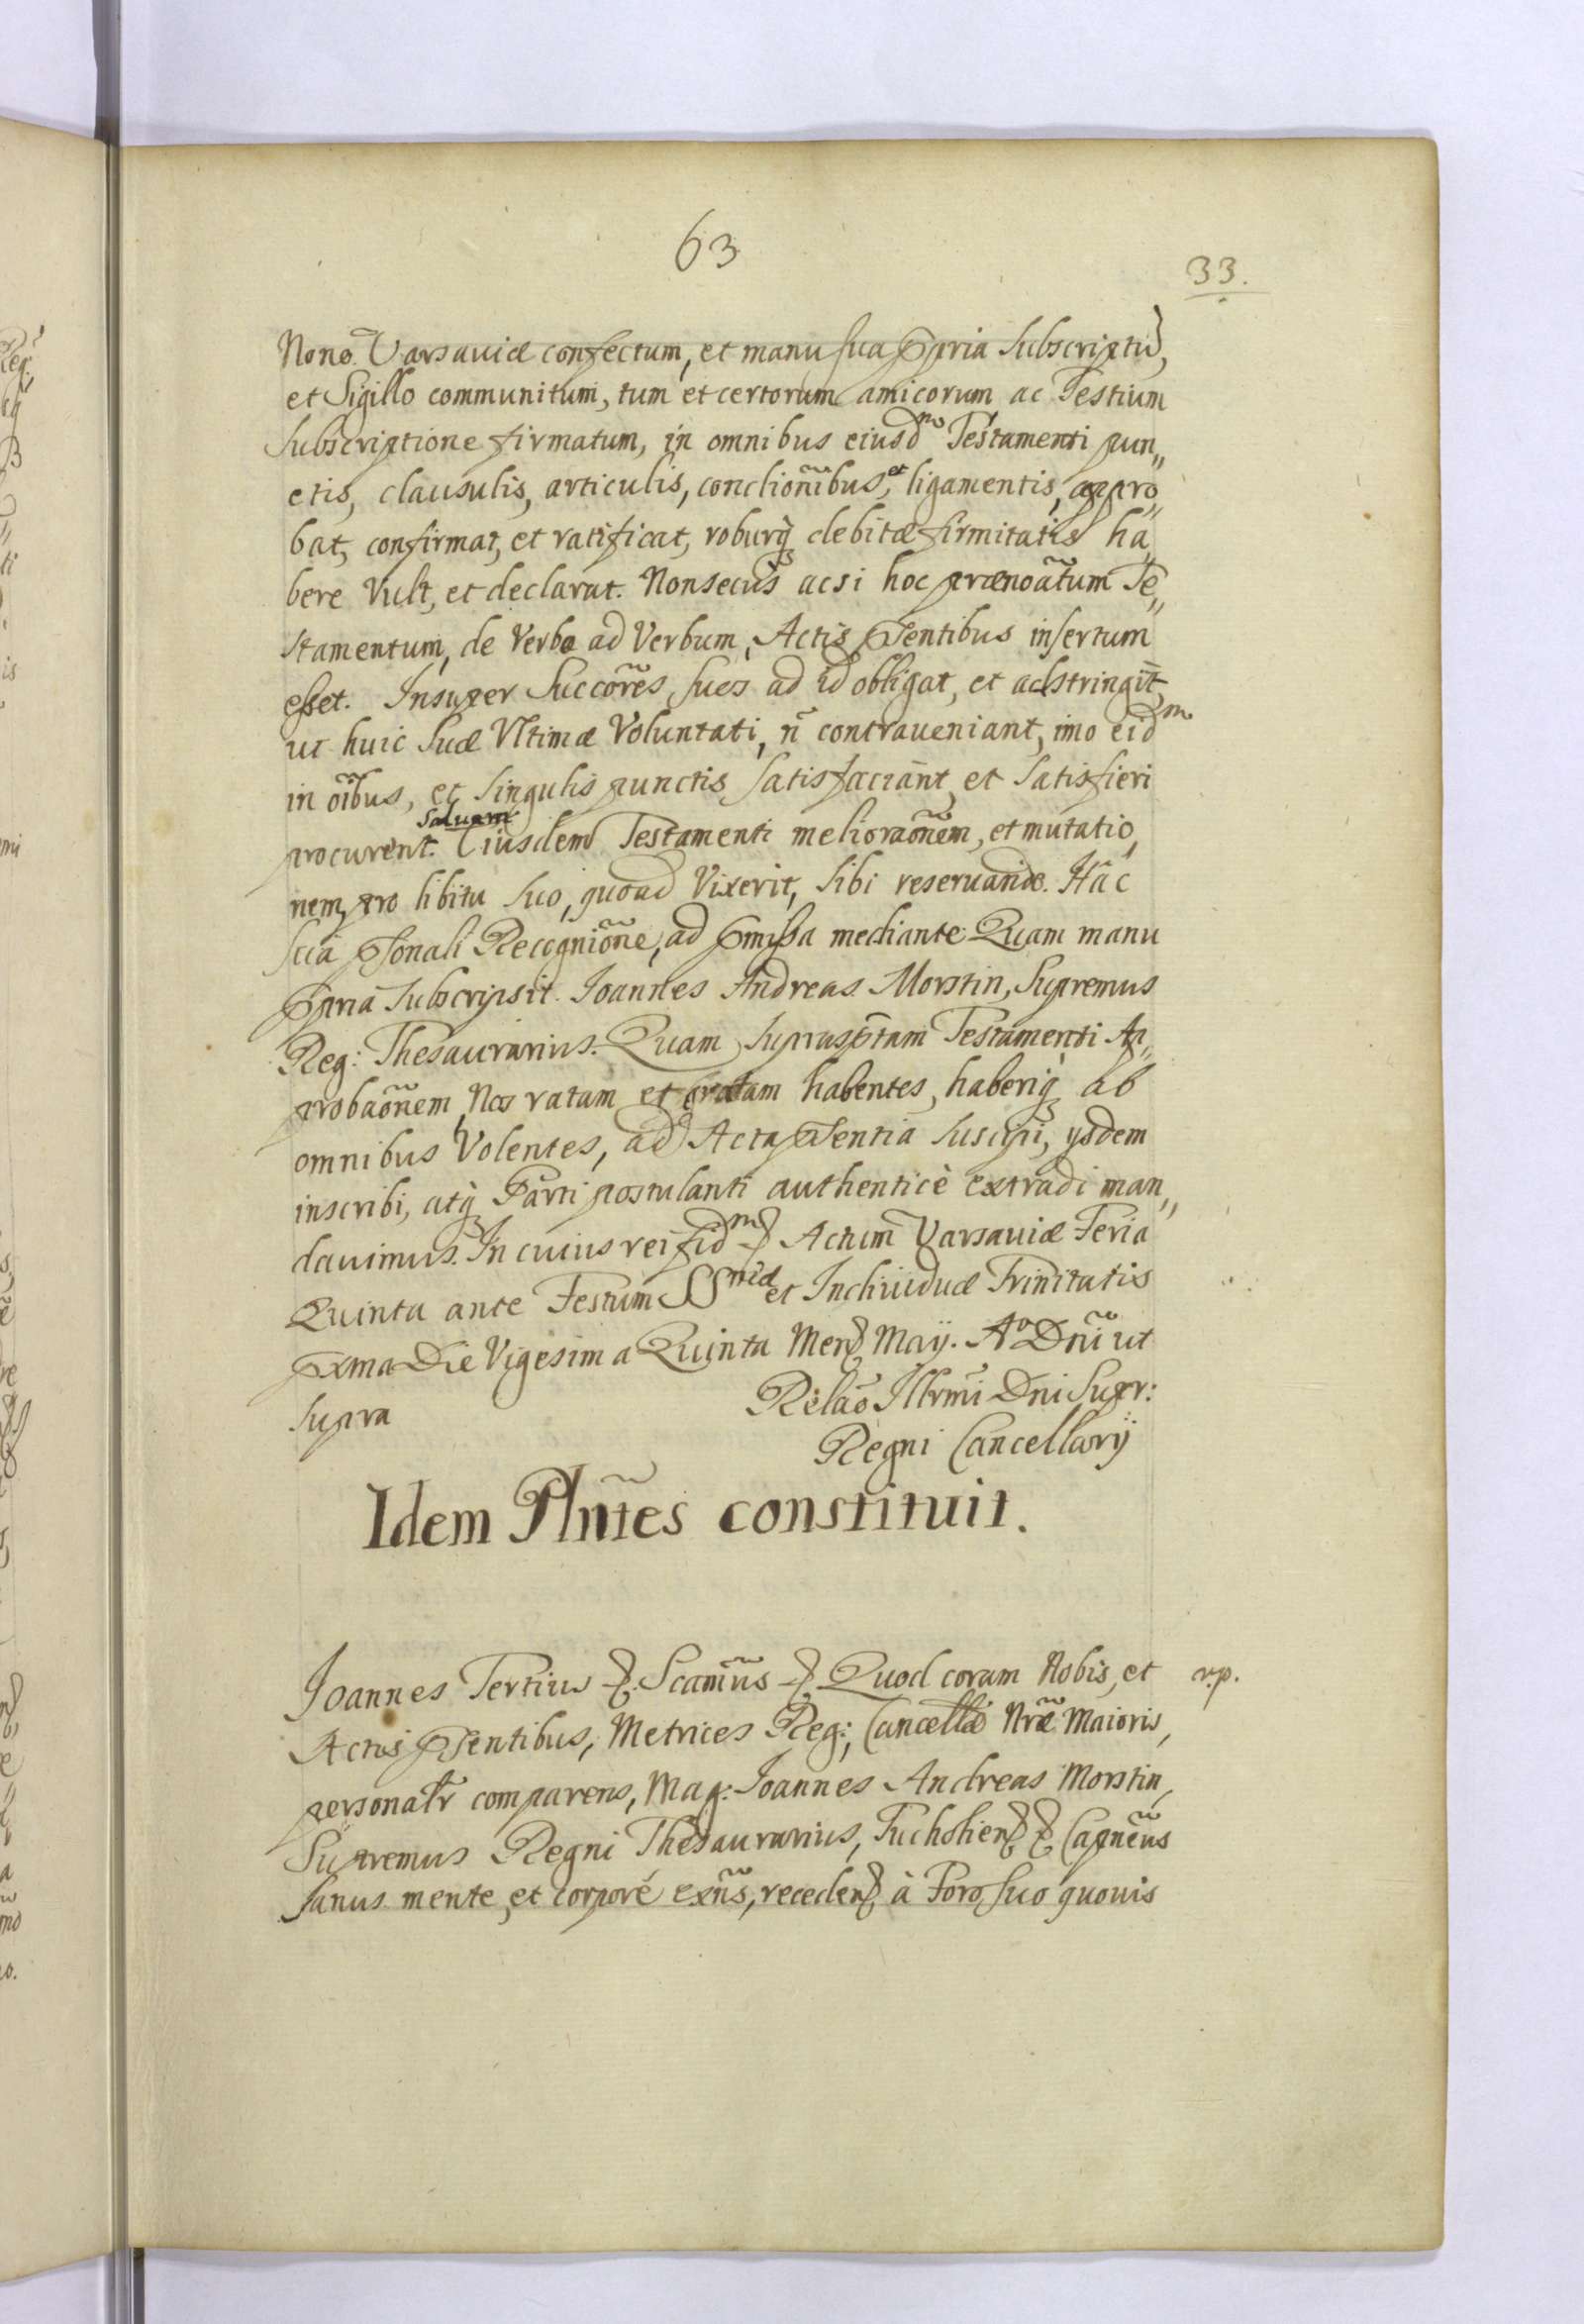 63
33.
Nono Varsaviæ confectum, et manu sua ꝓpria Subscriptũ,
et Sigillo communitum, tum et certorum amicorum ac Testium
Subscriptione firmatum, in omnibus eiusdᵐ Testamenti pun„
ctis, clausulis, articulis, condiõnibus, et ligamentis, appro„
bat, confirmat, et ratificat, roburq̃ꝫ debitæ firmitatis ha„
bere Vult, et declarat. Nonsecus acsi hoc prænoãtum Te„
stamentum, de Verbo ad Verbum, Actis p̃sentibus insertum
esset. Insuper Succõres suos ad id obligat, et adstringit,
ut huic Suæ Vltimæ Voluntati, ñ contraueniant, imo eidᵐ
in õibus, et singulis punctis satisfaciant, et Satisfieri
procurent. Saluam Eiusdem Testamenti melioraõnem, et mutatio„
nem, pro libitu suo, quoad Vixerit, sibi reseruando. Hac
sua p̃sonali Recogniõne, ad p̃missa mediante Quam manu
ꝓpria subscripsit. Ioannes Andreas Morstin, Supremus
Reg: Thesaurarius. Quam suprasc̃ptam Testamenti Ap„
probaõnem, Nos ratam et gratam habentes, haberiq̃ꝫ ab
omnibus Volentes, ad Acta p̃sentia suscipi, ysdem
inscribi, atq̃ꝫ Parti postulanti authenticè extradi man„
dauimus. In cuius rei fidᵐ ꝛc Actum Varsaviæ Feria
Quinta ante Festum SSᵐᵃᵉ et Indiuiduæ Trinitatis
p̃xma Die Vigesima Quinta Mens̃ Maÿ. Aº Dñi ut
supra
Relaõ Illrmi Dni Supr:
Regni Cancellarÿ
Idem Plñtes constituit.
Ioannes Tertius ꝛc. S̃camũs ꝛc Quod coram Nobis, et
rp.
Actis p̃sentibus, Metrices Reg:, Cancellæ Nr̃æ Maioris,
personalr̃ comparens, Mag: Ioannes Andreas Morstin,
Supremus Regni Thesaurarius, Tucholiens̃ ꝛc Capnẽus
sanus mente, et corpore exñs, recedens̃ à Foro suo quouis